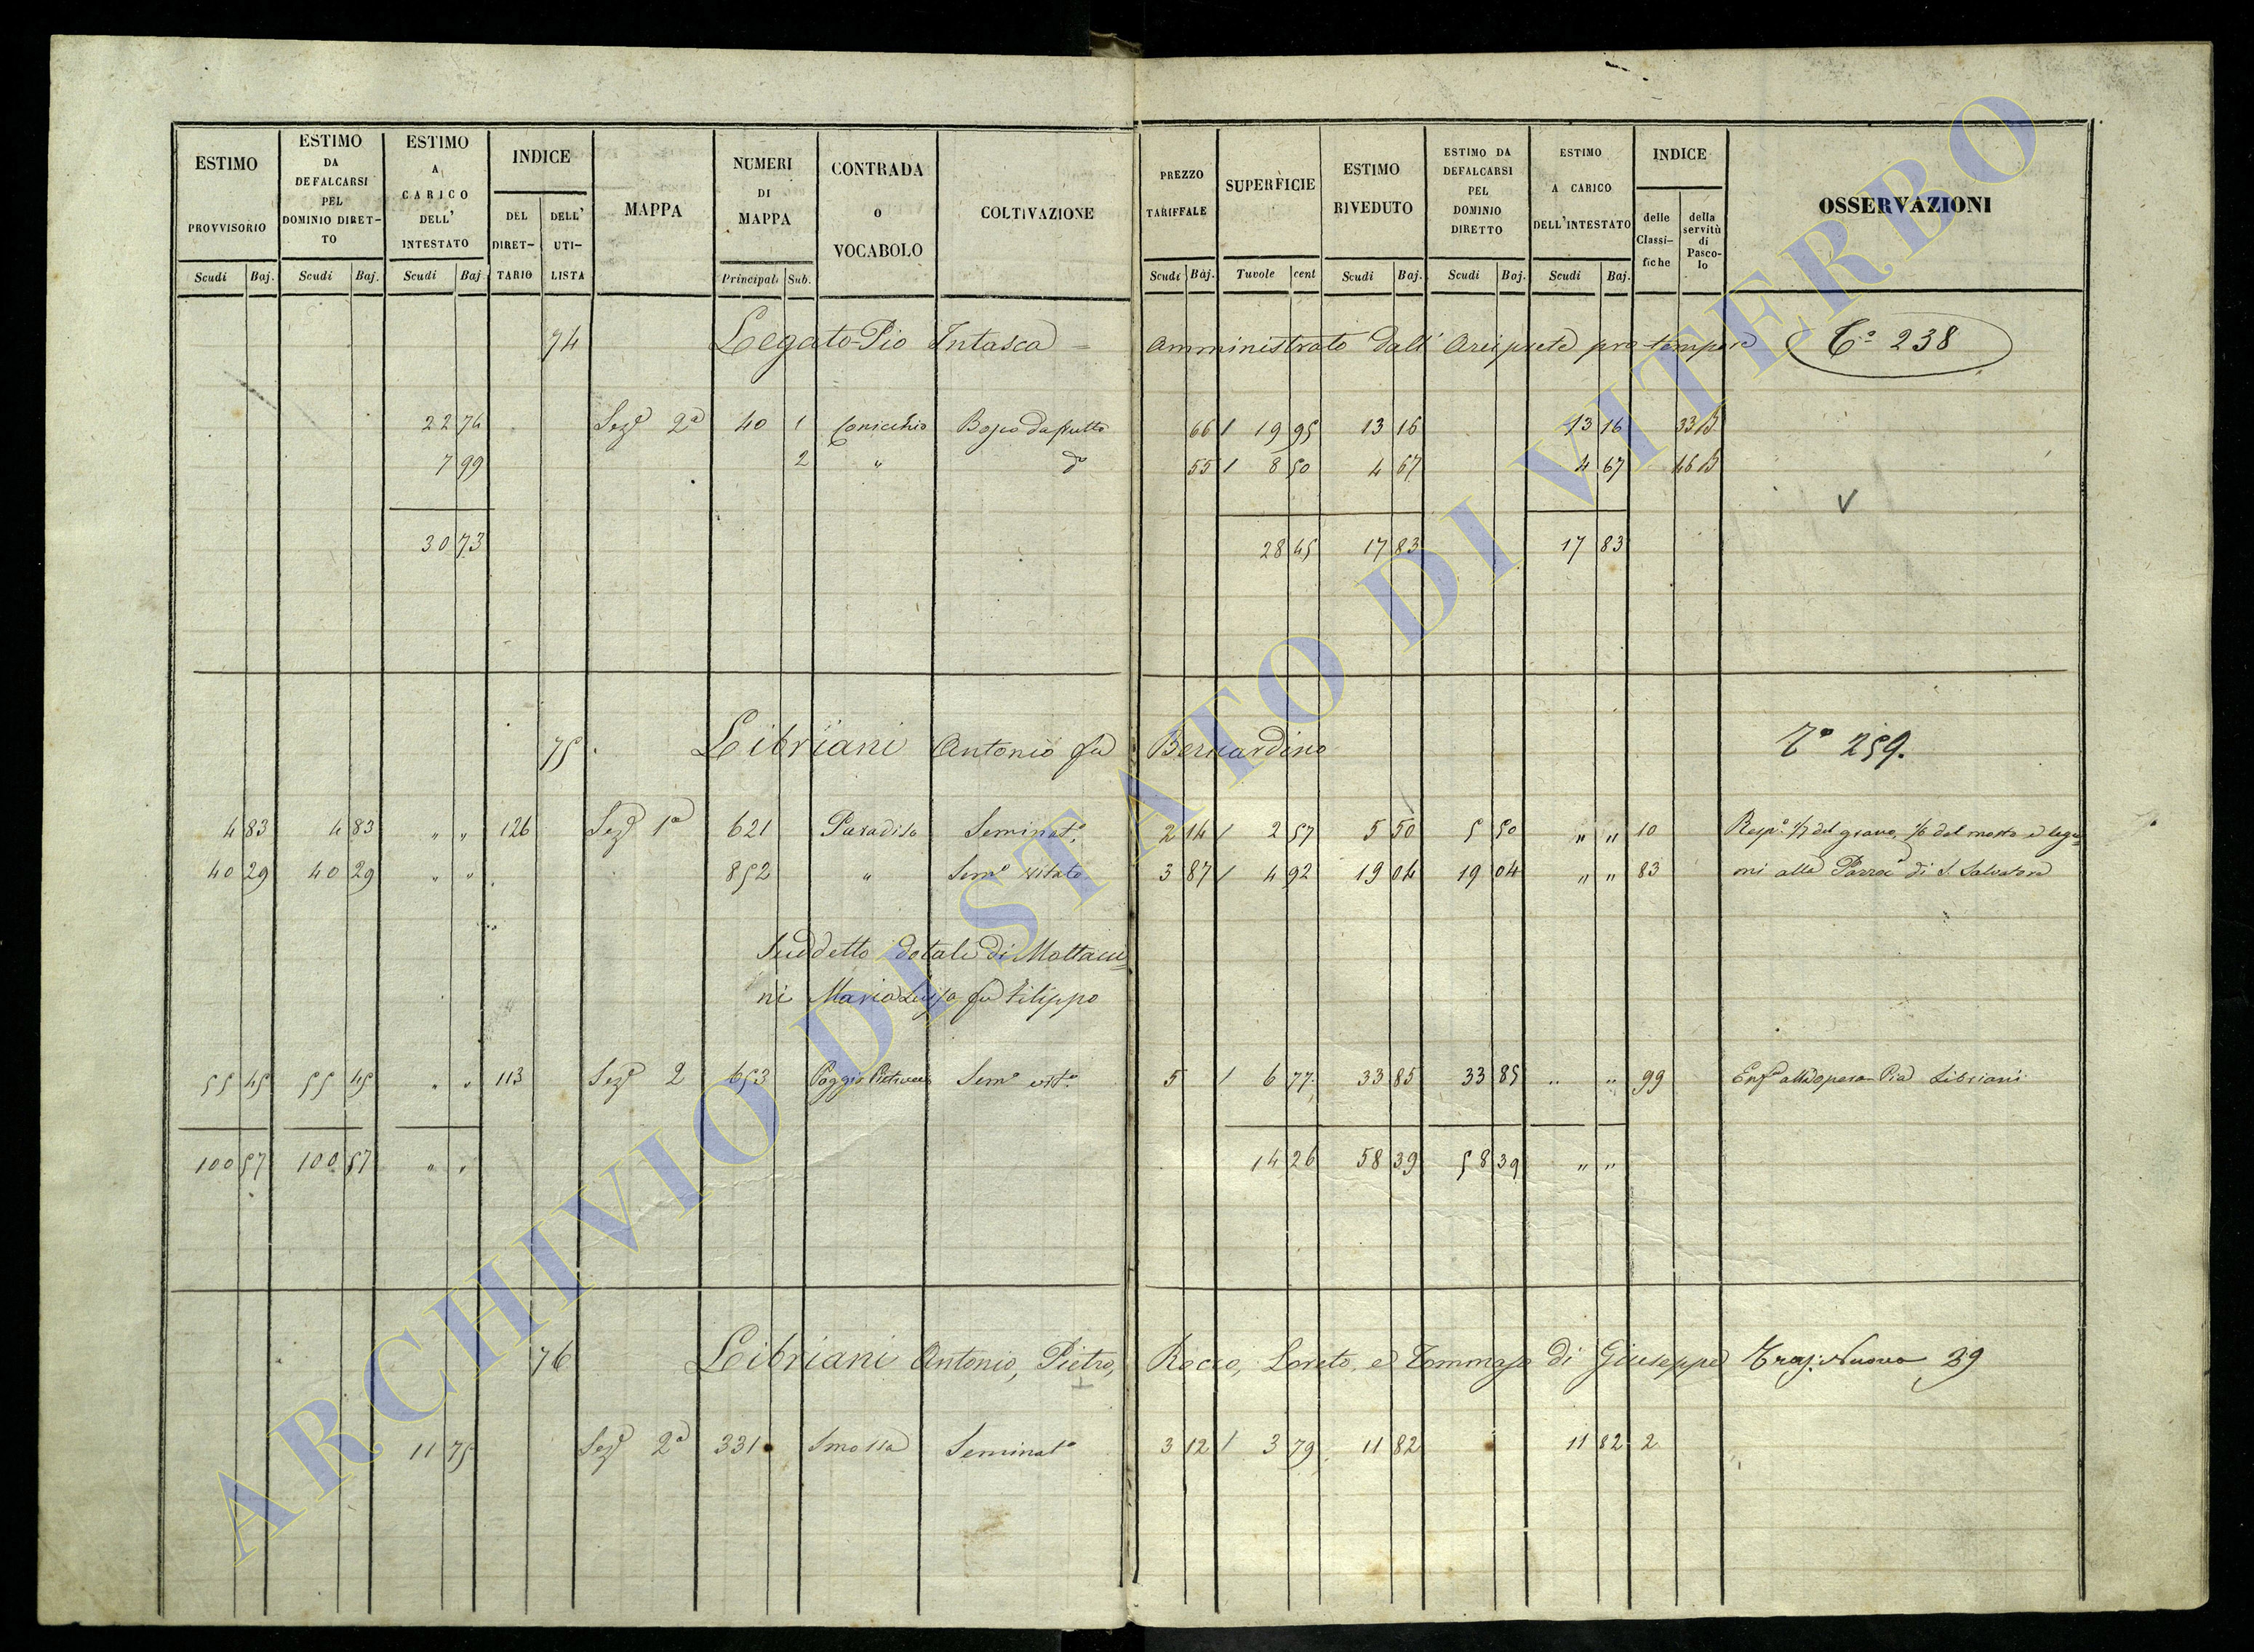 ESTIMO PROVVISORIO Scudi Baj.
ESTIMO DA DEFALCARSI PEL DOMINIO DIRET-TO Scudi Baj.
ESTIMO A CARICO DELL' INTESTATO Scudi Baj.
INDICE DEL DIRET-TARIO DELL' UTI-LISTA
MAPPA
NUMERI DI MAPPA Principali Sub.
CONTRADA O VOCABOLO
COLTIVAZIONE
PREZZO TARIFFALE Scudi Baj.
SUPERFICIE Tavole cent
ESTIMO RIVEDUTO Scudi Baj.
ESTIMO DA DEFALCARSI PEL DOMINIO DIRETTO Scudi Baj.
ESTIMO A CARICO DELL'INTESTATO Scudi Baj.
INDICE delle Classi-fiche della servitù di Pasco-lo
OSSERVAZIONI
74 Legato Pio Intasca = Amministrato dall' Arciprete pro tempore T.º 238
22 74 Sezº 2ª 40 1 Conicchio Bosco da frutto 66 / 19 95 13 16 13 16 33 B
7 99 2 " dº 55 / 8 50 4 67 4 67 46 B
V
30 73 28 45 17 83 17 83
75 Libriani Antonio fu Bernardino Tº 259.
4 83 4 83 " " 126 Sezº 1ª 621 Paradiso Seminatº 2 14 / 2 57 5 50 5 50 " " 10 Rispº 1/7 del grano, 1/6 del mosto e legu=
40 29 40 29 " " 852 " Semº vitato 3 87 / 4 92 19 04 19 04 " " 83 mi alla Parroª di S. Salvatore
Suddetto dotale di Mattacci=
ni Maria Luisa fu Filippo
55 45 55 45 " " 113 Sezº 2 653 Poggio Semº vitº 5 / 6 77 33 85 33 85 " " 99 Enfª all'opera Pia Libriani
100 57 100 57 " " 14 26 58 39 58 39 " "
76 Libriani Antonio, Pietro, Rocco, Loreto, e Tommaso di Giuseppe Trasp. Nuovo 39
11 75 Sezº 2ª 331 Smossa Seminatº 3 12 / 3 79 11 82 11 82 2
ARCHIVIO DI STATO DI VITERBO